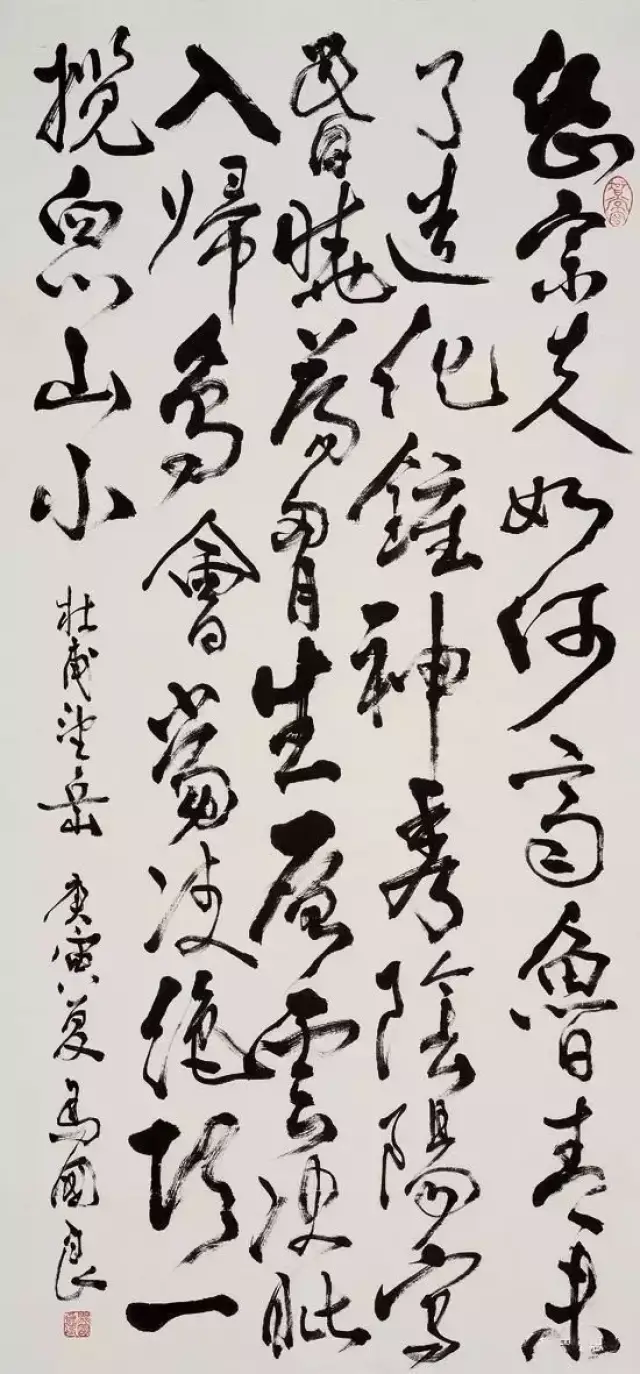 岱宗夫如何齊魯青未
了造化鍾神秀陰陽割
昬曉蕩胷生層雲決眦
入歸鳥會當凌絕頂一
攬衆山小
杜甫望岳 庚寅夏馬國良